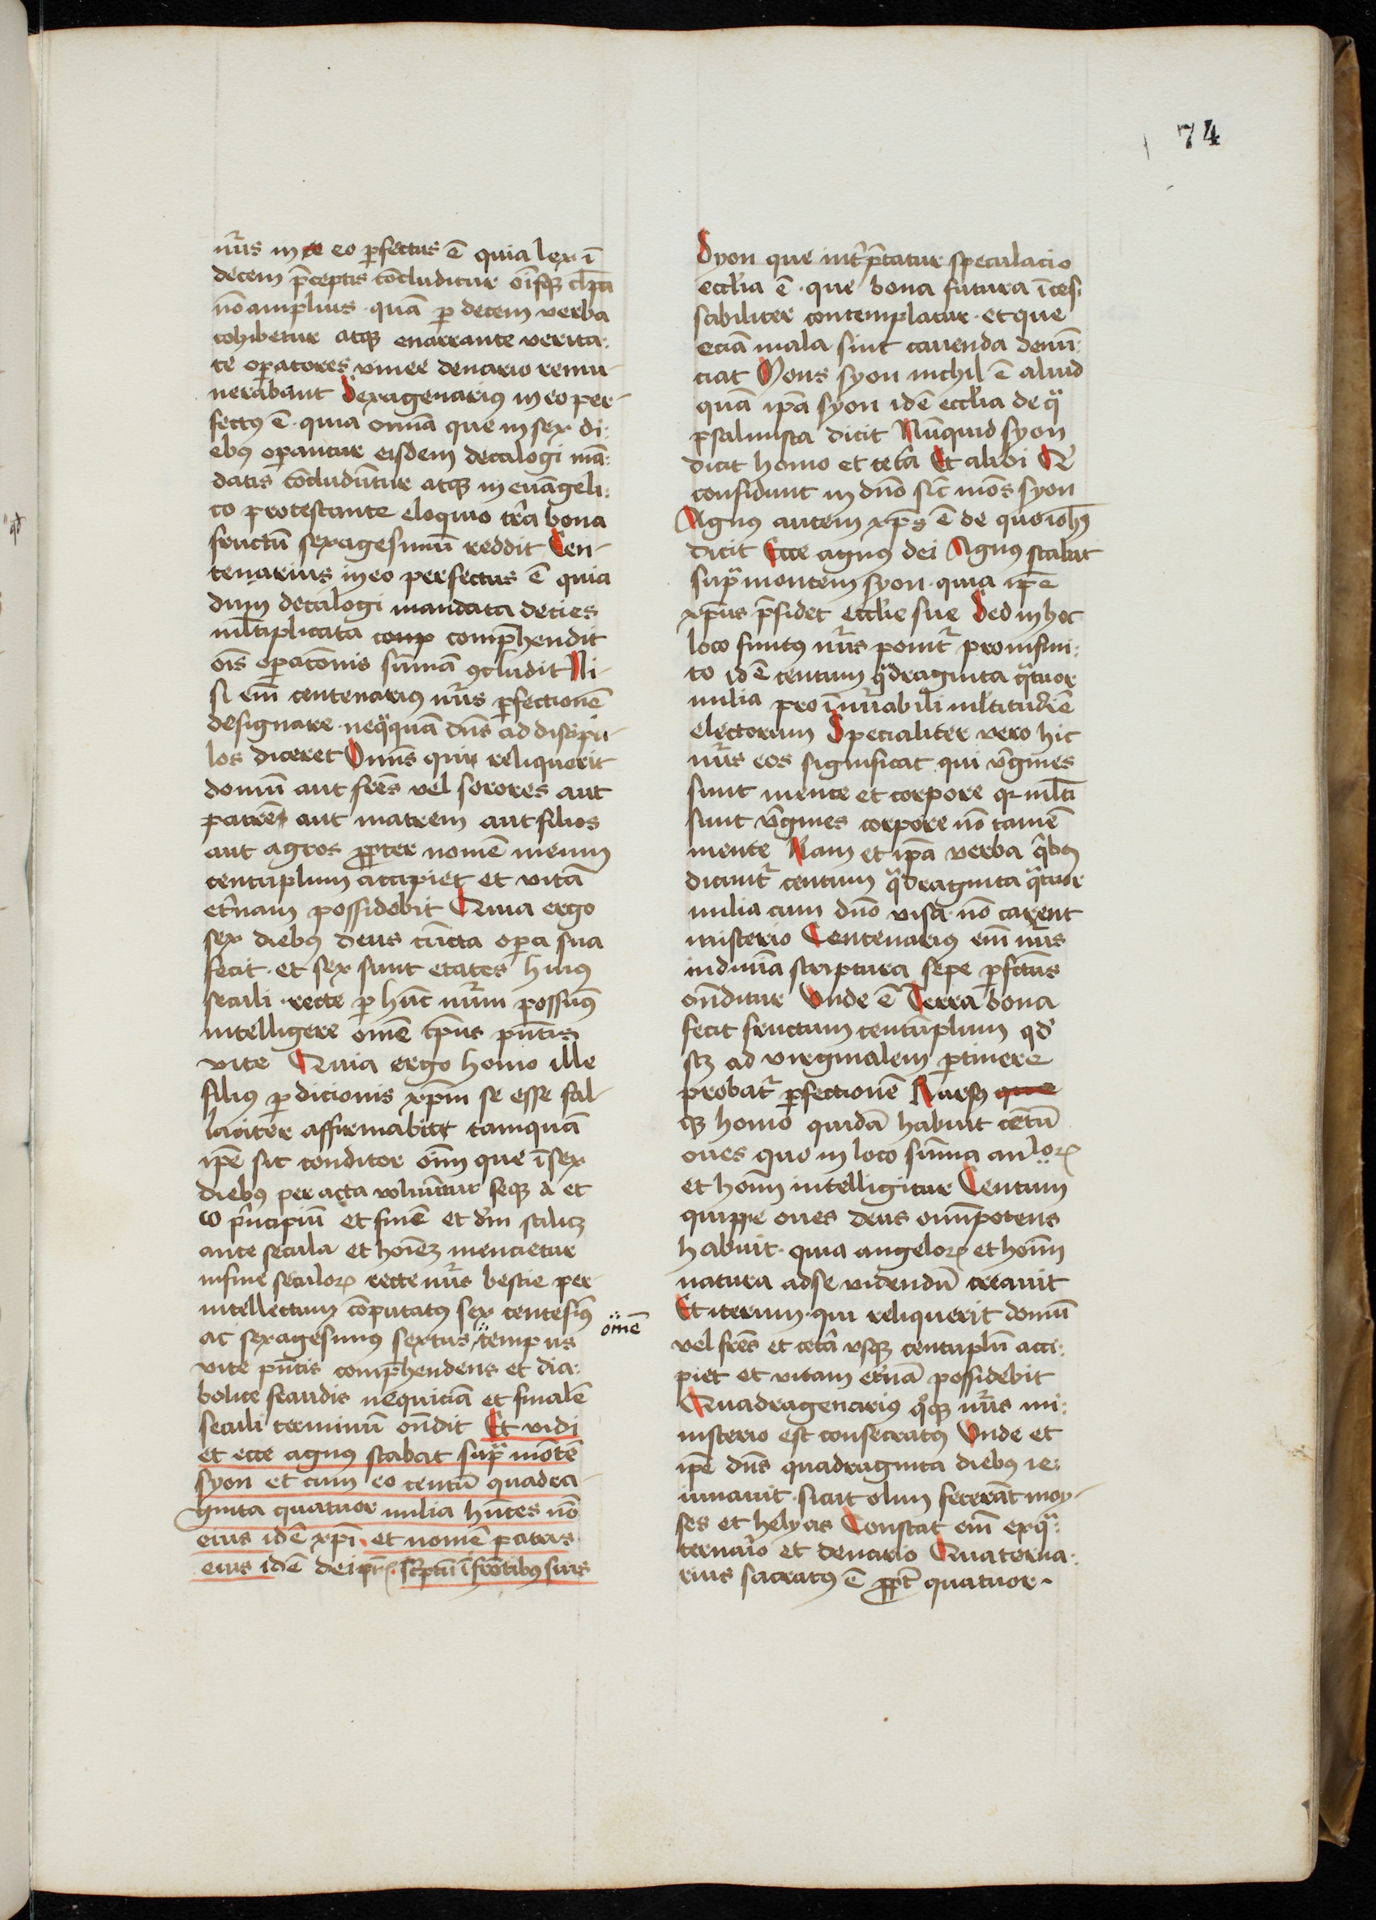 74
nūs in eo ꝑfectus ē quia lex ī
decem p̄ceptis cōcluditur oīsqꝫ cl̄pa
nō amplius · quā ꝑ decem verba
cohibetur atqꝫ enarrante verita:
te oꝑatores vinee denario remu
nerabant Sexagenarius in eo per-
fectꝰ ē · quia omīa que in sex di:
ebꝰ oꝑantur eisdem decalogi mā:
datis cōcludūtur atqꝫ in euāgeli:
co protestante eloquio tr̄a bona
fructū sexagesimū reddit Cen-
tenarius in eo perfectus ē quia
dum decalogi mandata decies
ml̄tiplicata comp comp̄hendit
oīs oꝑatōnis sūmā ꝯcludit Ni-
si em̄ centenarius nūs ꝑfectionē
designare · neqᷓquā dn̄s ad discipu-
los diceret Omīs qui reliquerit
domū aut frēs vel sorores aut
patrē aut matrem aut filios
aut agros ꝓpter nomē meum
centuplum accipiet et vitā
et̄nam possidebit Quia ergo
sex diebꝰ deus cūcta oꝑa sua
fecit · et sex sunt etates huiꝰ
seculi · recte ꝑ hūc nūm possumꝰ
intelligere omē tp̄us pn̄tis
vite Quia ergo homo ille
filius ꝑdicionis xp̄m se esse fal-
laciter affirmabitt tamquā
ip̄e sit conditor oīm que ī sex
diebꝰ per acta voluūtur seqꝫ a et
ω p̄ncipiū et finē et dm̄ scilicꝫ
ante secula et hoīeꝫ mencietur
in fine seculoꝝ recte nūs bestie per
intellectum cōputatꝰ sex centesimꝰ
ac sexagesimus sextus tempus
omē
vite pn̄tis comp̄hendens et dia:
bolice fraudis nequiciā et finalē
seculi terminū on̄dit Et vidi
et ecce agnus stabat supᷓ mōtē
syon et cum eo centū quadra-
ginta quatuor milia hn̄tes nō
eius idē xp̄i · et nomē patris
eius idē dei pr̄is · sc̄ptū ī frōtibꝰ suis
Syon que int̄p̄tatur speculacio
eccl̄ia ē · que bona futura īces:
sabiliter contemplatur · et que
eciā mala sint cauenda denū:
ciat Mons syon nichil ē aliud
quā ip̄a syon idē eccl̄ia de qᷓ
psalmista dicit Nūquid syon
dicit homo et cet̄a Et alibi Qi
confidunt in dn̄o sic̄ mōs syon
Agnus autem xp̄s ē de quo ioh̄es
dicit Ecce agnus dei Agnus stabat
supᷓ montem syon · quia ip̄e
xp̄us p̄sidet eccl̄ie sue Sed in hoc
loco finitꝰ nūs ponit᷑ pro infini:
to idē centum qᷓdraginta qᷓtuor
milia pro īnūabili ml̄titudiē
electorum Specialiter vero hic
nūs eos significat qui v̄gines
sunt mente et corpore qr ml̄ti
sunt v̄gines corpore nō tamē
mente Nam et ip̄a verba qͥbꝰ
dicunt᷑ centum qᷓdraginta qᷓtuor
milia cum dn̄o visa · nō carent
misterio Centenarius em̄ nūs
in diuīa scriptura sepe ꝑfectus
on̄ditur Vnde ē Terra bona
fecit fructum centuplum qd̓
scꝫ ad virginalem ꝑtinere
probat᷑ ꝑfectionē Rursꝰ que
qꝫ homo quidā habuit cētū
oues quo in loco sūma an̄loꝝ
et hoīm intelligitur Centum
quippe oues deus omīpotens
habuit · quia angeloꝝ et hoīm
natura ad se videndū creauit
Et iterum · qui reliquerit domū
vel frēs et cet̄a vsqꝫ centuplū acci:
piet et vitam et̄nā possidebit
Quadragenarius qͦqꝫ nūs mi:
nisterio est consecratꝰ Vnde et
ip̄e dn̄s quadraginta diebꝰ ie:
iunauit · sicut olim fecerāt moy-
ses et helyas Constat em̄ ex qᷓ:
ternaīo et denario Quaterna:
rius sacratꝰ ē ꝓpt̄ quatuor ·